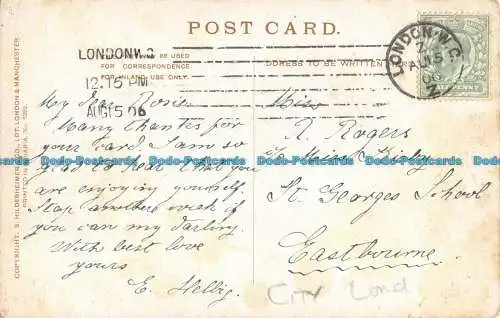 POST CARD.
MAY BE USED
FOR CORRESPONDENCE
FOR INLAND USE ONLY.
ADDRESS TO BE WRITTEN
LONDON W.C
12.15 PM
AUG 15 06
LONDON. W.C.
AU 15
06
My Dear Rosie
Many thanks for
your card. I am so
glad to hear that you
are enjoying yourself.
Stop another week if
you can my darling.
With best love
yours
E. Helbig
Miss
R. Rogers
St. Georges School
Eastbourne.
CITY Lond
COPYRIGHT. S. HILDESHEIMER & CO., LTD. LONDON & MANCHESTER.
PRINTED IN
Dodo-Postcards Dodo-Postcards Dodo-Postcards Dodo-Postcards Dodo-Postcards